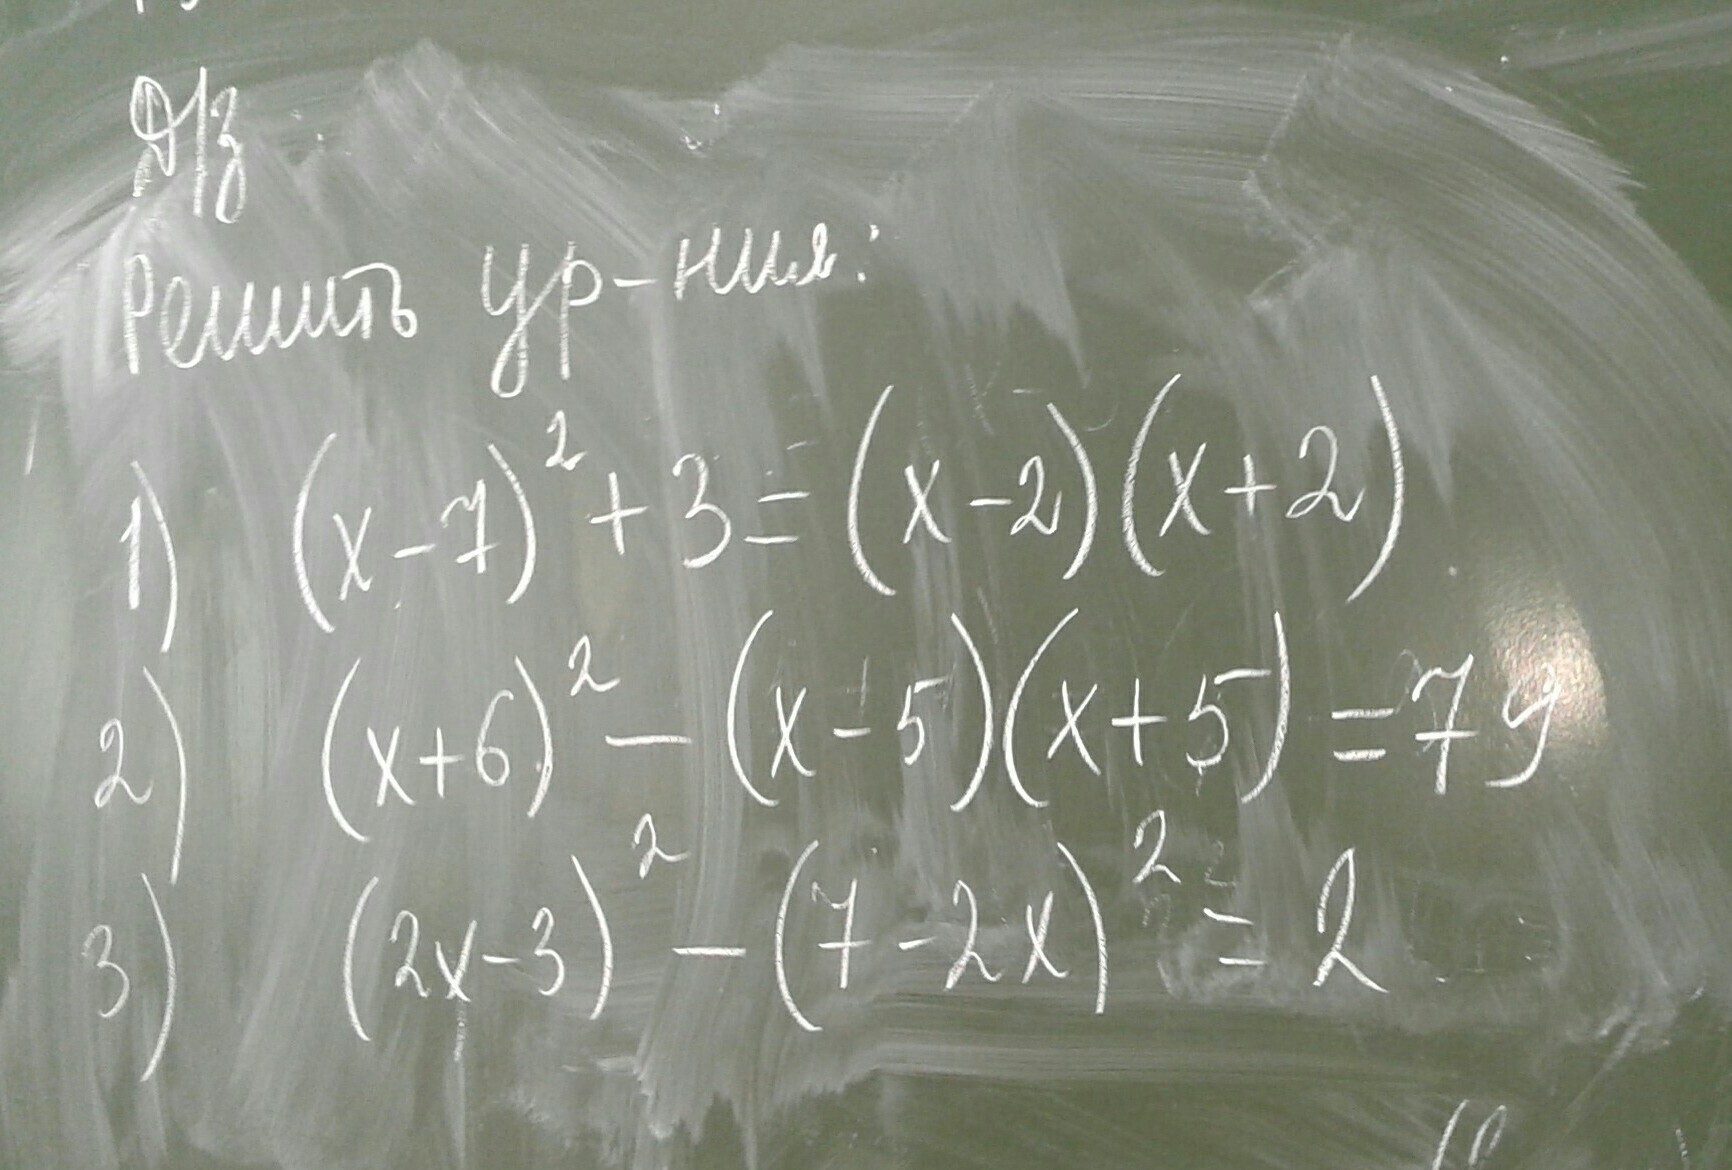 Д/з
Решить ур-ния:
1) (x-7)² + 3 = (x-2)(x+2)
2) (x+6)² - (x-5)(x+5) = 79
3) (2x-3)² - (7-2x)² = 2